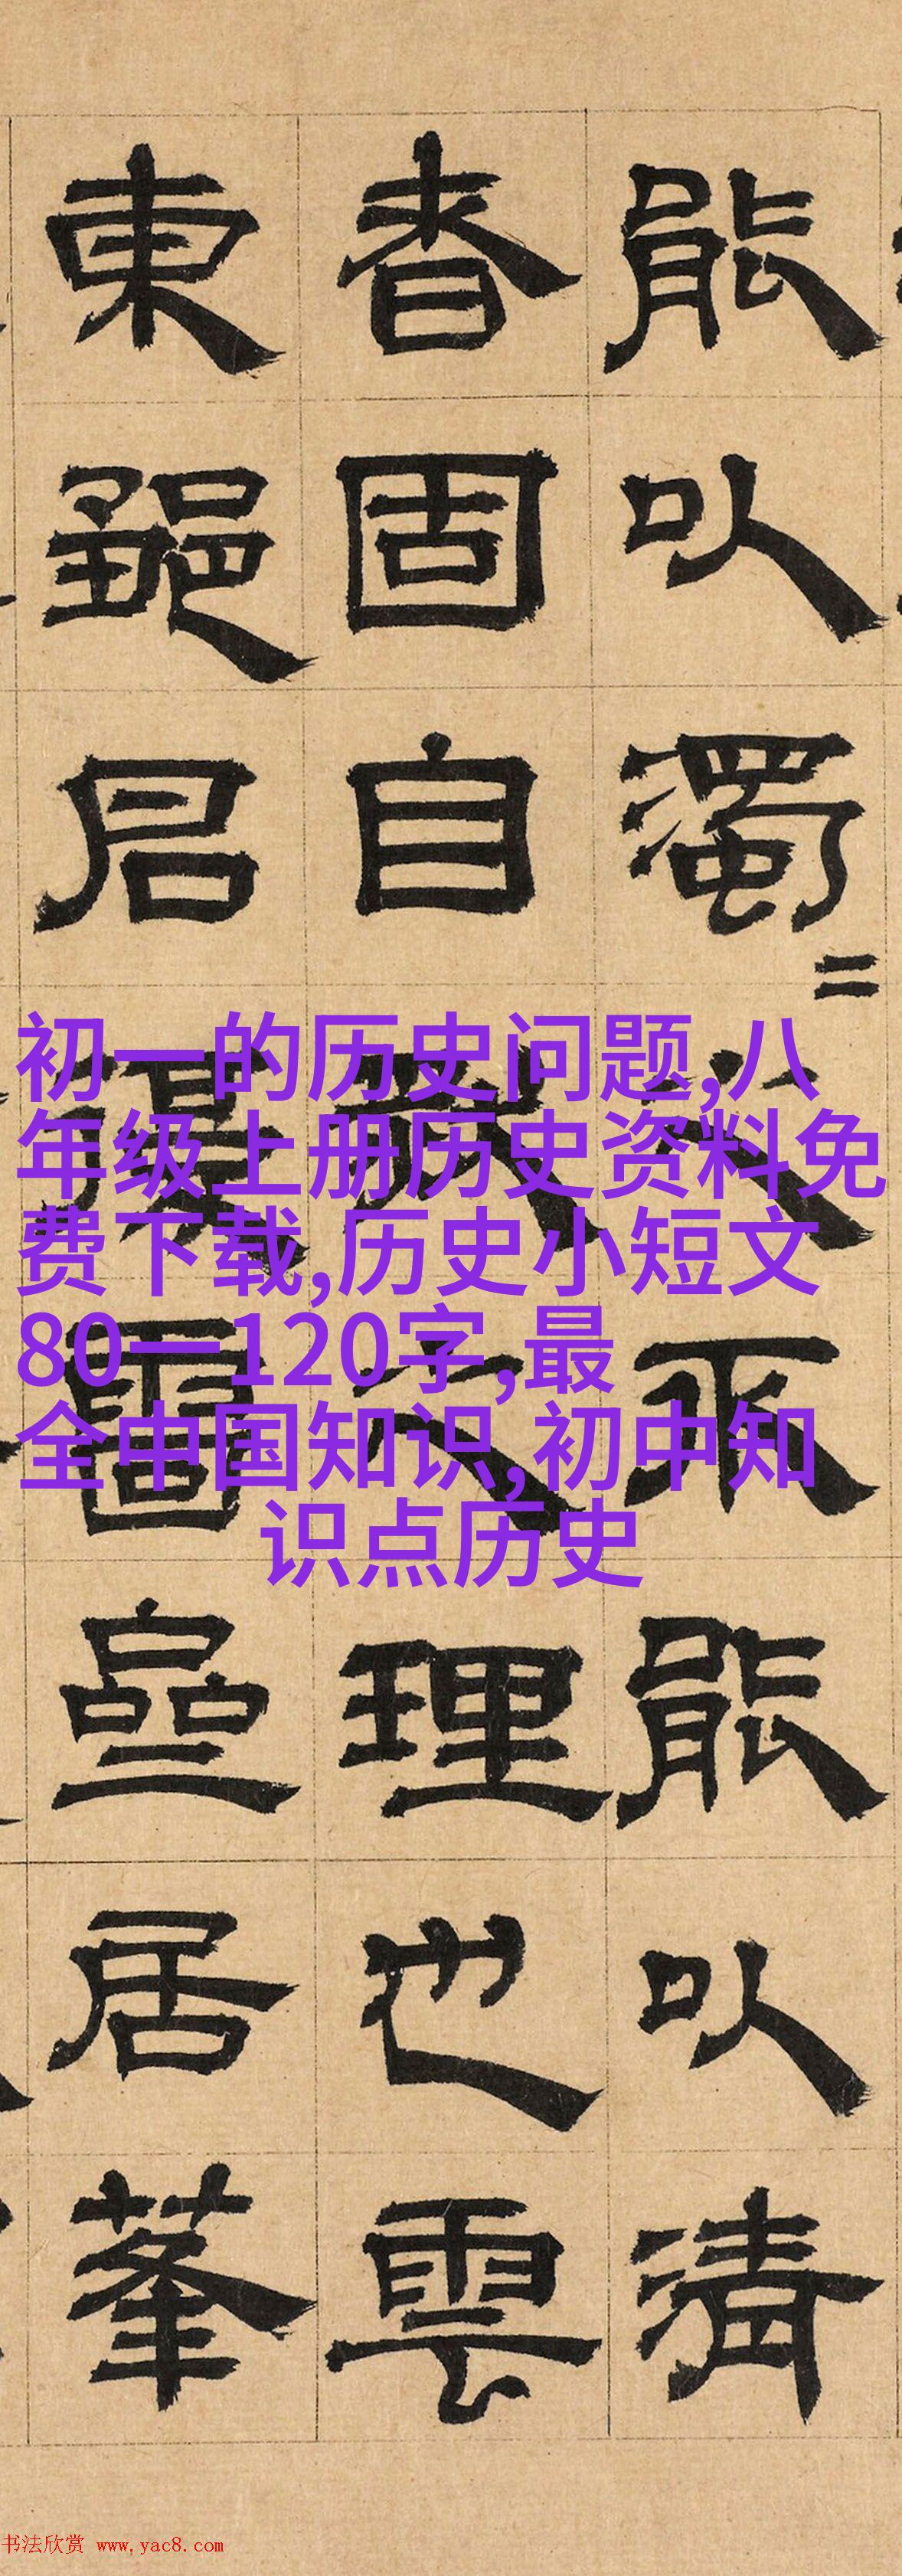 能以濁〃久不能以清
者固自理也雲
東居
初一的历史问题,八
年级上册历史资料免
费下载,历史小短文
80一120字,最
全中国知识,初中知
识点历史
书法欣赏 www.yac8.com